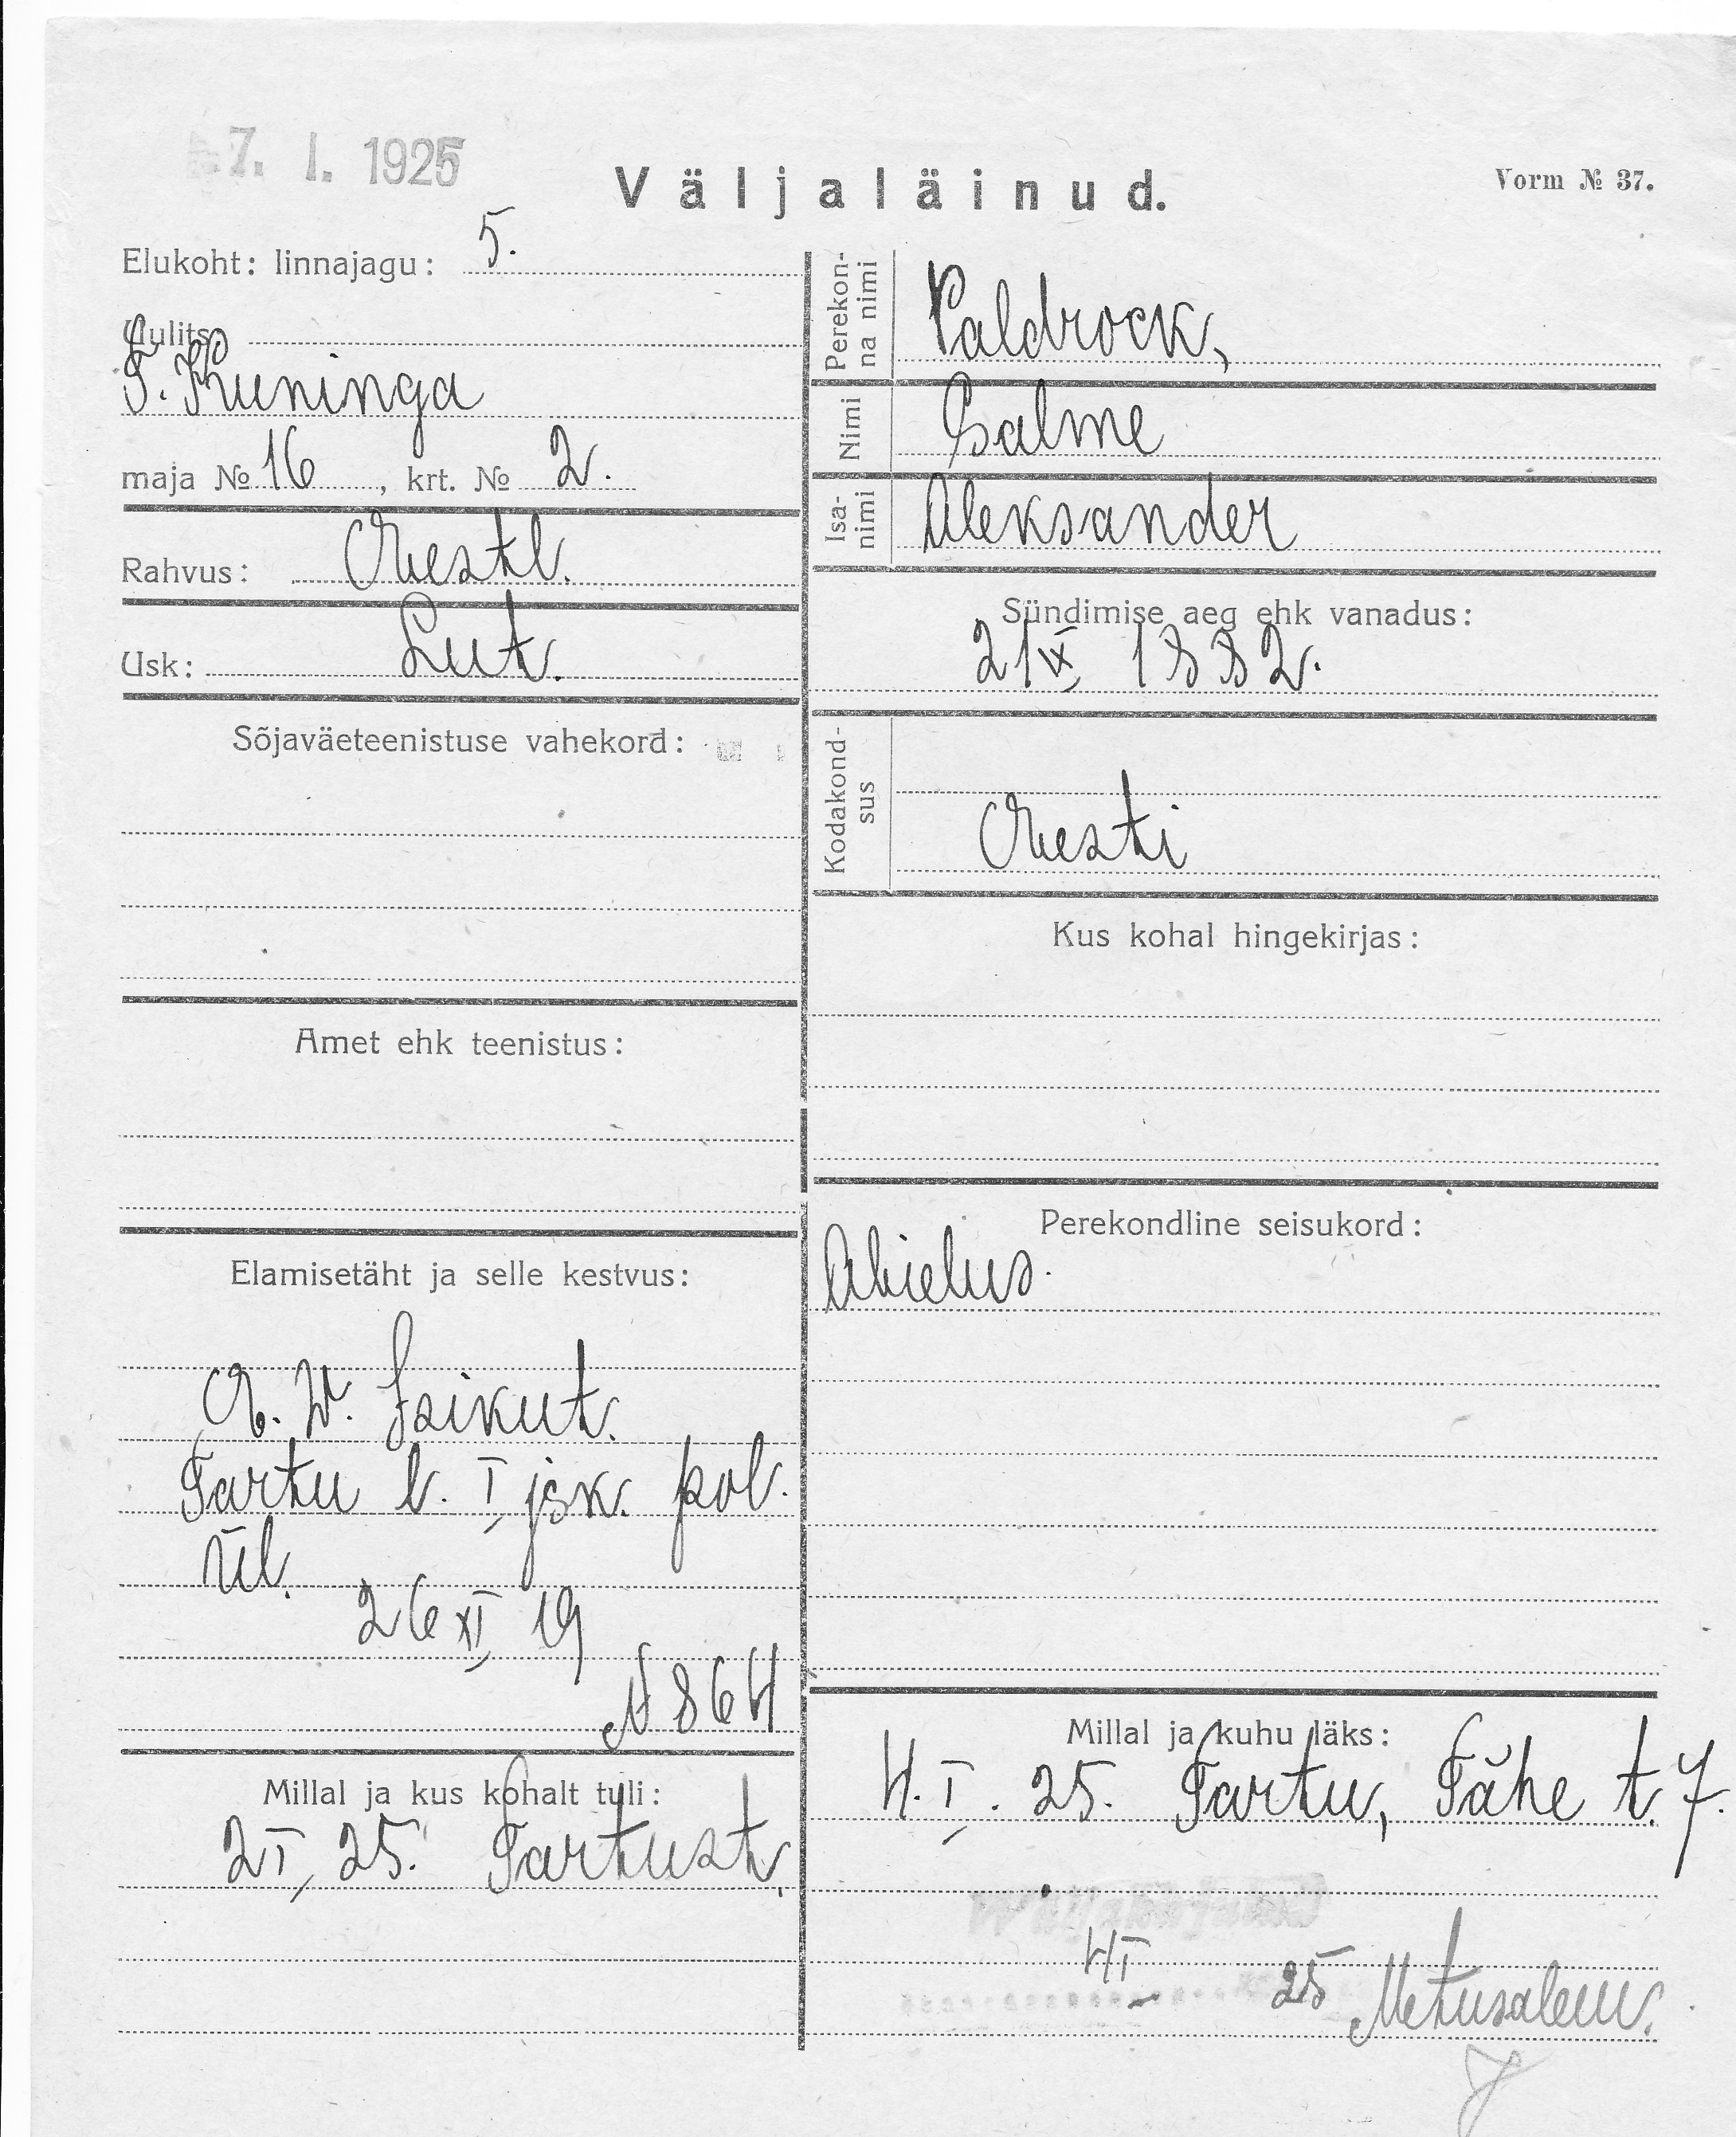 7. I. 1925
Väljaläinud.
Vorm № 37.
Elukoht: linnajagu: 5.
Uulits
S. Kuninga
maja № 16, krt. № 2.
Rahvus: Eestl.
Usk: Lut.
Sõjaväeteenistuse vahekord:
Amet ehk teenistus:
Elamisetäht ja selle kestvus:
E. W. Isikut.
Tartu l. I jsk. pol.
ül.
26 XI 19
N 864
Millal ja kus kohalt tuli:
2 I 25. Tartust.
Perekon-
na nimi
Paldrock,
Nimi Salme
Isa-
nimi
Aleksander
Sündimise aeg ehk vanadus:
21 IX 1882.
Kodakond-
sus
Eesti
Kus kohal hingekirjas:
Perekondline seisukord:
Abielus.
Millal ja kuhu läks:
4. I. 25. Tartu, Tähe t. 7.
4 I 25 Metusalem.